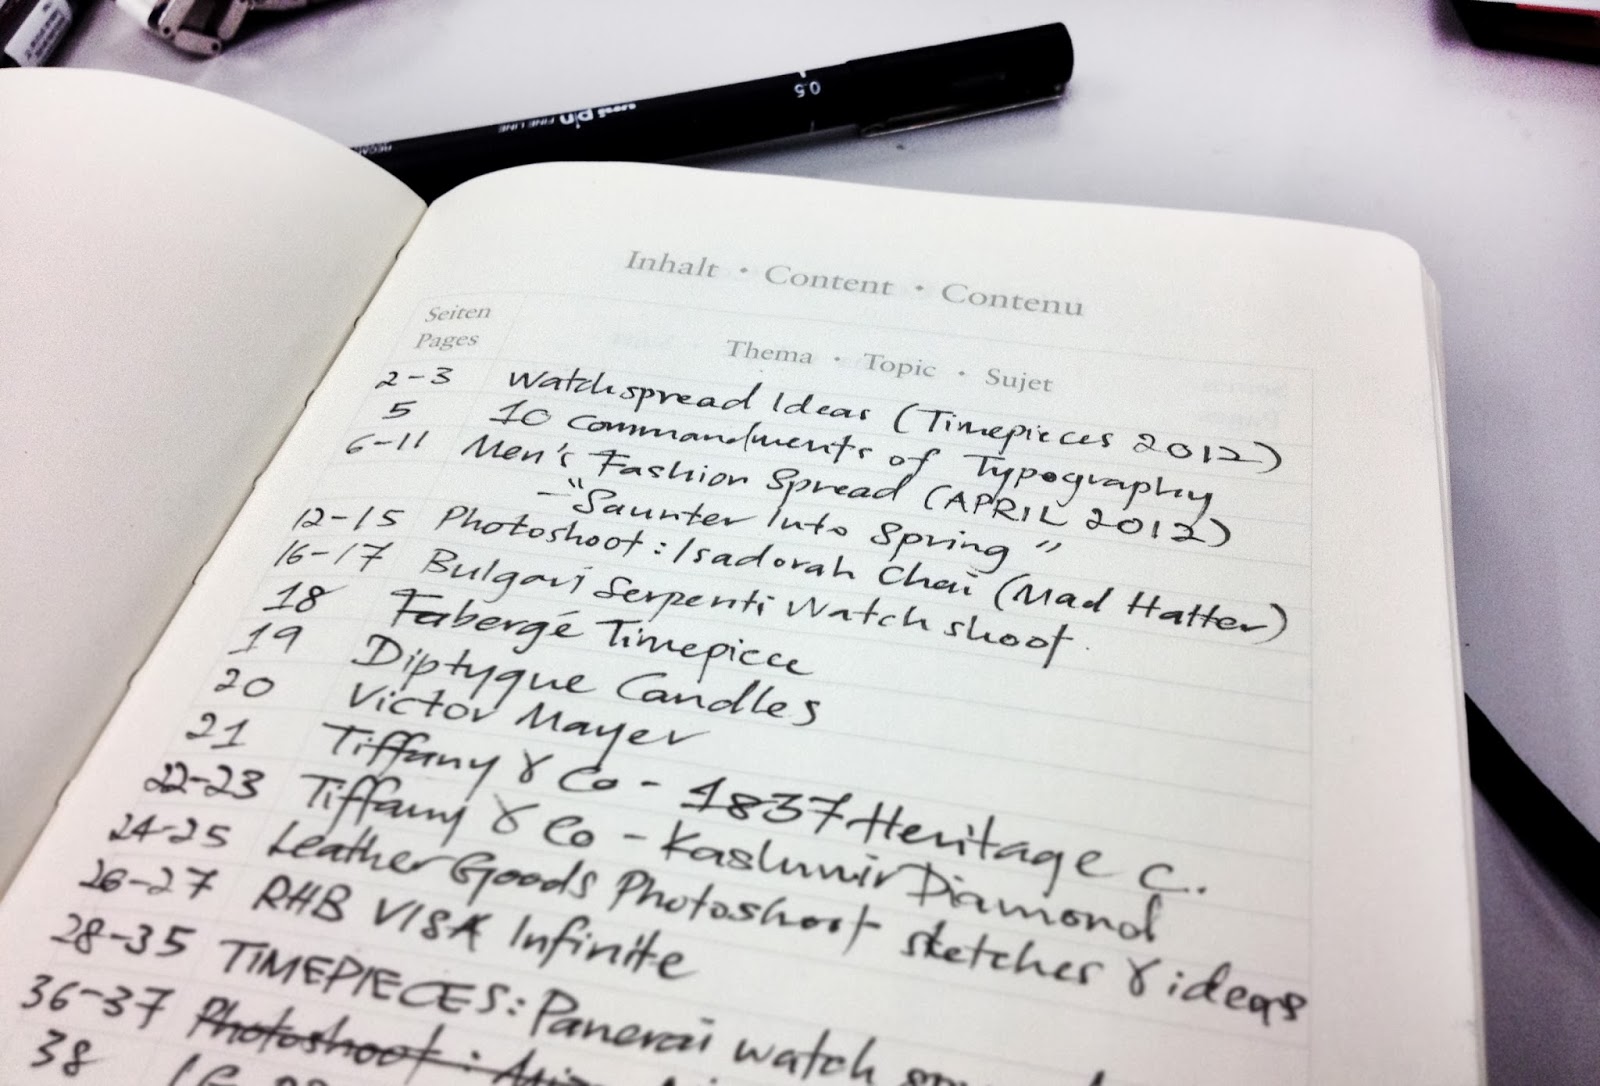 0.5
uni pin FINE LINE
Inhalt · Content · Contenu
Seiten
Pages
Thema · Topic · Sujet
2-3 Watch spread Ideas (Timepieces 2012)
5 10 Commandments of Typography
6-11 Men's Fashion Spread (APRIL 2012)
- "Saunter Into Spring"
12-15 Photoshoot: Isadorah Chai (Mad Hatter)
16-17 Bulgari Serpenti Watch shoot
18 Fabergé Timepiece
19 Diptyque Candles
20 Victor Mayer
21 Tiffany & Co - 1837 Heritage C.
22-23 Tiffany & Co - Kashmir Diamond
24-25 Leather Goods Photoshoot sketches & ideas
26-27 RHB VISA Infinite
28-35 TIMEPIECES: Panerai watch
36-37 Photoshoot:
38